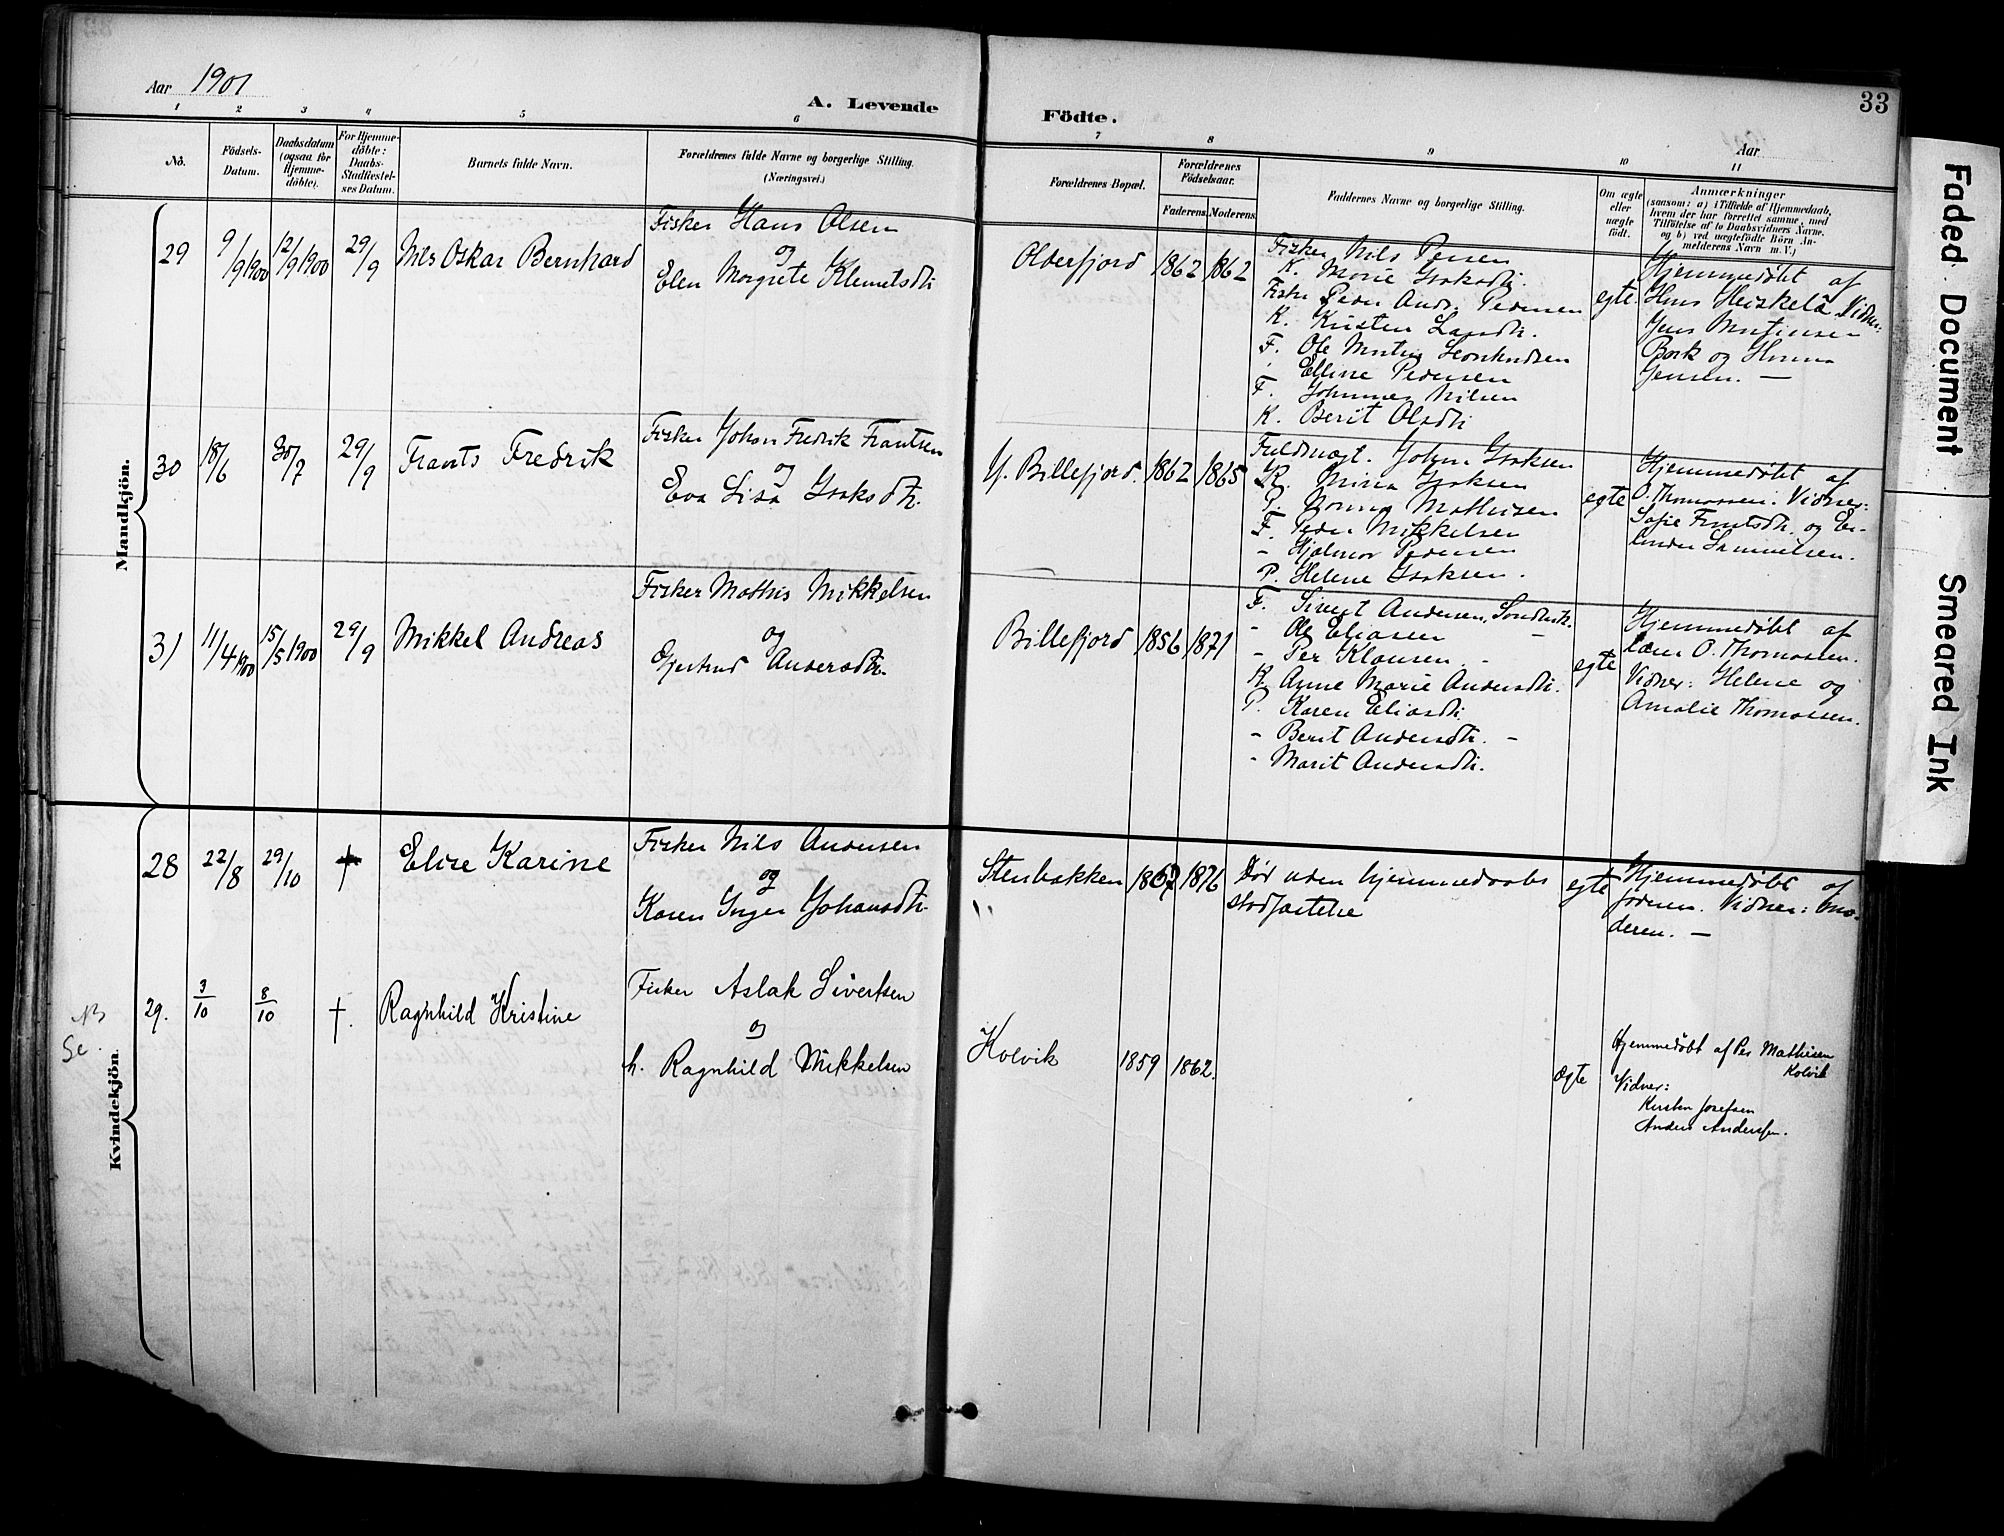 Aar 1901
A. Levende
Födte.
33
Aar
1 2 3 4 5 6 7 8 9 10 11
No.
Födsels-
Datum.
Daabsdatum
(ogsaa for
Hjemme-
döbte).
For Hjemme-
döbte:
Daabs-
Stadfæstel-
ses Datum.
Barnets fulde Navn.
Forældrenes fulde Navne og borgerlige Stilling.
(Næringsvei.)
Forældrenes Bopæl.
Forældrenes
Födselsaar.
Faderens. Moderens.
Faddernes Navne og borgerlige Stilling.
Om ægte
eller
uægte
födt.
Anmærkninger
(saasom: a) i Tilfælde af Hjemmedaab,
hvem der har forrettet samme, med
Tilföielse af to Daabsvidners Navne,
og b) ved uægtefödte Börn An-
melderens Navn m. V.)
Mandkjön.
29
9/9 1900
12/9 1900
29/9
Nils Oskar Bernhard
Fisker Hans Olsen
og
Elen Margrete Klemetsdtr.
Olderfjord
1862
1862
Fisker Nils Persen
K. Marie Isaksdtr.
Fisker Peder Andr. Pedersen
K. Kristen Larsdtr.
F. Ole Martin
Elline Pedersen
F. Johannes Nilsen
K. Berit Olsdtr.
egte
Hjemmedøbt af
Vidner:
Jens
Bork og
Jensen. —
30
18/6
30/7
29/9
Frants Fredrik
Fisker Johan Fredrik Frantsen
og
Eva Lisa Isaksdtr.
Y. Billefjord.
1862
1865
Fuldmægt. Johan Isaksen
K. Mina Isaksen
P. Mathisen
F. Peder Mikkelsen
- Hjalmar Pedersen
P. Helene Isaksen.
egte
Hjemmedøbt af
O. Thomassen. Vidner:
Sofie Frantsdtr. og Er-
lender Samuelsen.
31
11/4 1900
15/5 1900
29/9
Mikkel Andreas
Fisker Mathis Mikkelsen
og
Gjertrud Andersdtr.
Billefjord
1856
1871
F. Sivert Andersen,
- Ole Eliasen —
- Per Klausen. -
K. Anne Marie Andersdtr.
P. Karen Eliasdtr.
- Berit Andersdtr. -
- Marit Andersdtr.
egte
Hjemmedøbt af
lærer O. Thomassen.
Vidner: Helene og
Amalie Thomassen.
Kvindekjön.
28
22/8
29/10
†
Elise Karine
Fisker Nils Andersen
og
Karen Inger Johansdtr.
Stenbakken
1867
1876
Død uden hjemmedaabs
stadfæstelse
egte
Hjemmedøbt af
faderen. Vidner: mo-
deren. —
NB
Se.
29.
3/10
8/10
†.
Ragnhild Kristine
Fisker Aslak Sivertsen
og
h. Ragnhild Mikkelsen
Kolvik
1859
1862.
Ægte
Hjemmedøbt af Per Mathisen
Kolvik
Vidner:
Kirsten Josefsen
Anders Anderssen.
Faded Document
Smeared Ink